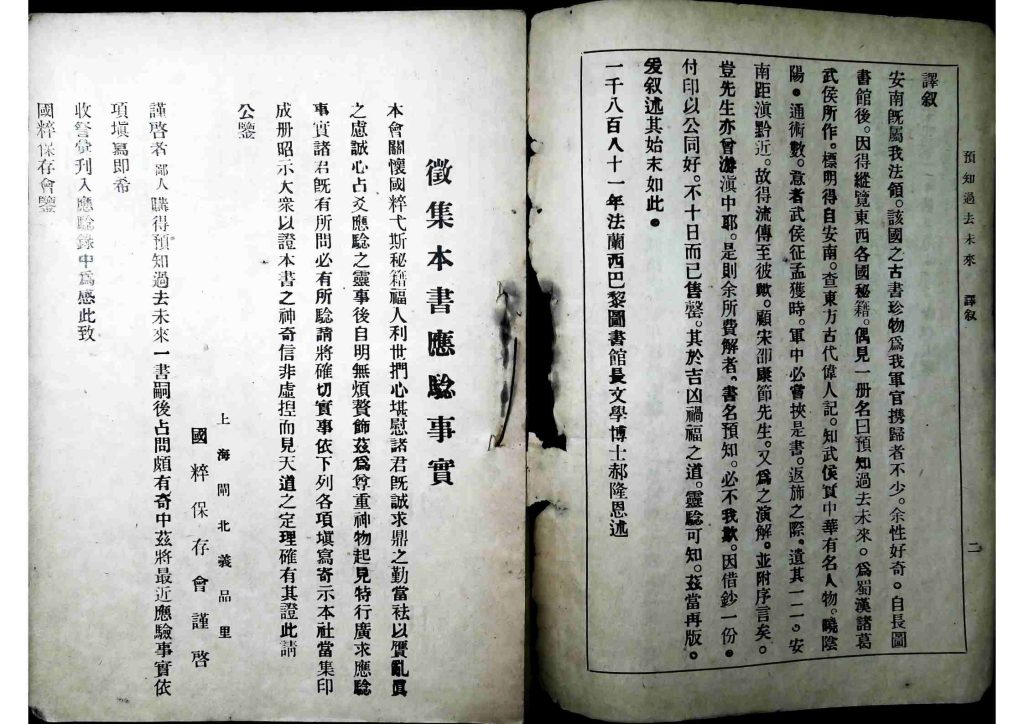 預知過去未來　譯叙
二
譯叙
安南既屬我法領。該國之古書珍物爲我軍官携歸者不少。余性好奇。自長圖
書館後。因得縱覽東西各國秘籍。偶見一册名曰預知過去未來。爲蜀漢諸葛
武侯所作。標明得自安南。查東方古代偉人記。知武侯實中華有名人物。曉陰
陽。通術數。意者武侯征孟獲時。軍中必嘗挾是書。返斾之際。遺其一二。安
南距滇黔近。故得流傳至彼歟。顧宋邵康節先生。又爲之演解。並附序言矣。
豈先生亦曾游滇中耶。是則余所費解者。書名預知。必不我欺。因借鈔一份。
付印以公同好。不十日而已售罄。其於吉凶禍福之道。靈驗可知。茲當再版。
爰叙述其始末如此。
一千八百八十一年法蘭西巴黎圖書館長文學博士郝隆恩述
徵集本書應驗事實
本會關懷國粹弋斯秘籍福人利世捫心堪慰諸君既誠求鼎之勤當袪以贋亂眞
之慮誠心占爻應驗之靈事後自明無煩贅飾茲爲尊重神物起見特行廣求應驗
事實諸君既有所問必有所驗請將確切實事依下列各項塡寫寄示本社當集印
成册昭示大衆以證本書之神奇信非虛捏而見天道之定理確有其證此請
公鑒
上海閘北義品里
國粹保存會謹啓
謹啓者鄙人購得預知過去未來一書嗣後占問頗有奇中茲將最近應驗事實依
項塡寫即希
收詧彙刊入應驗錄中爲感此致
國粹保存會鑒